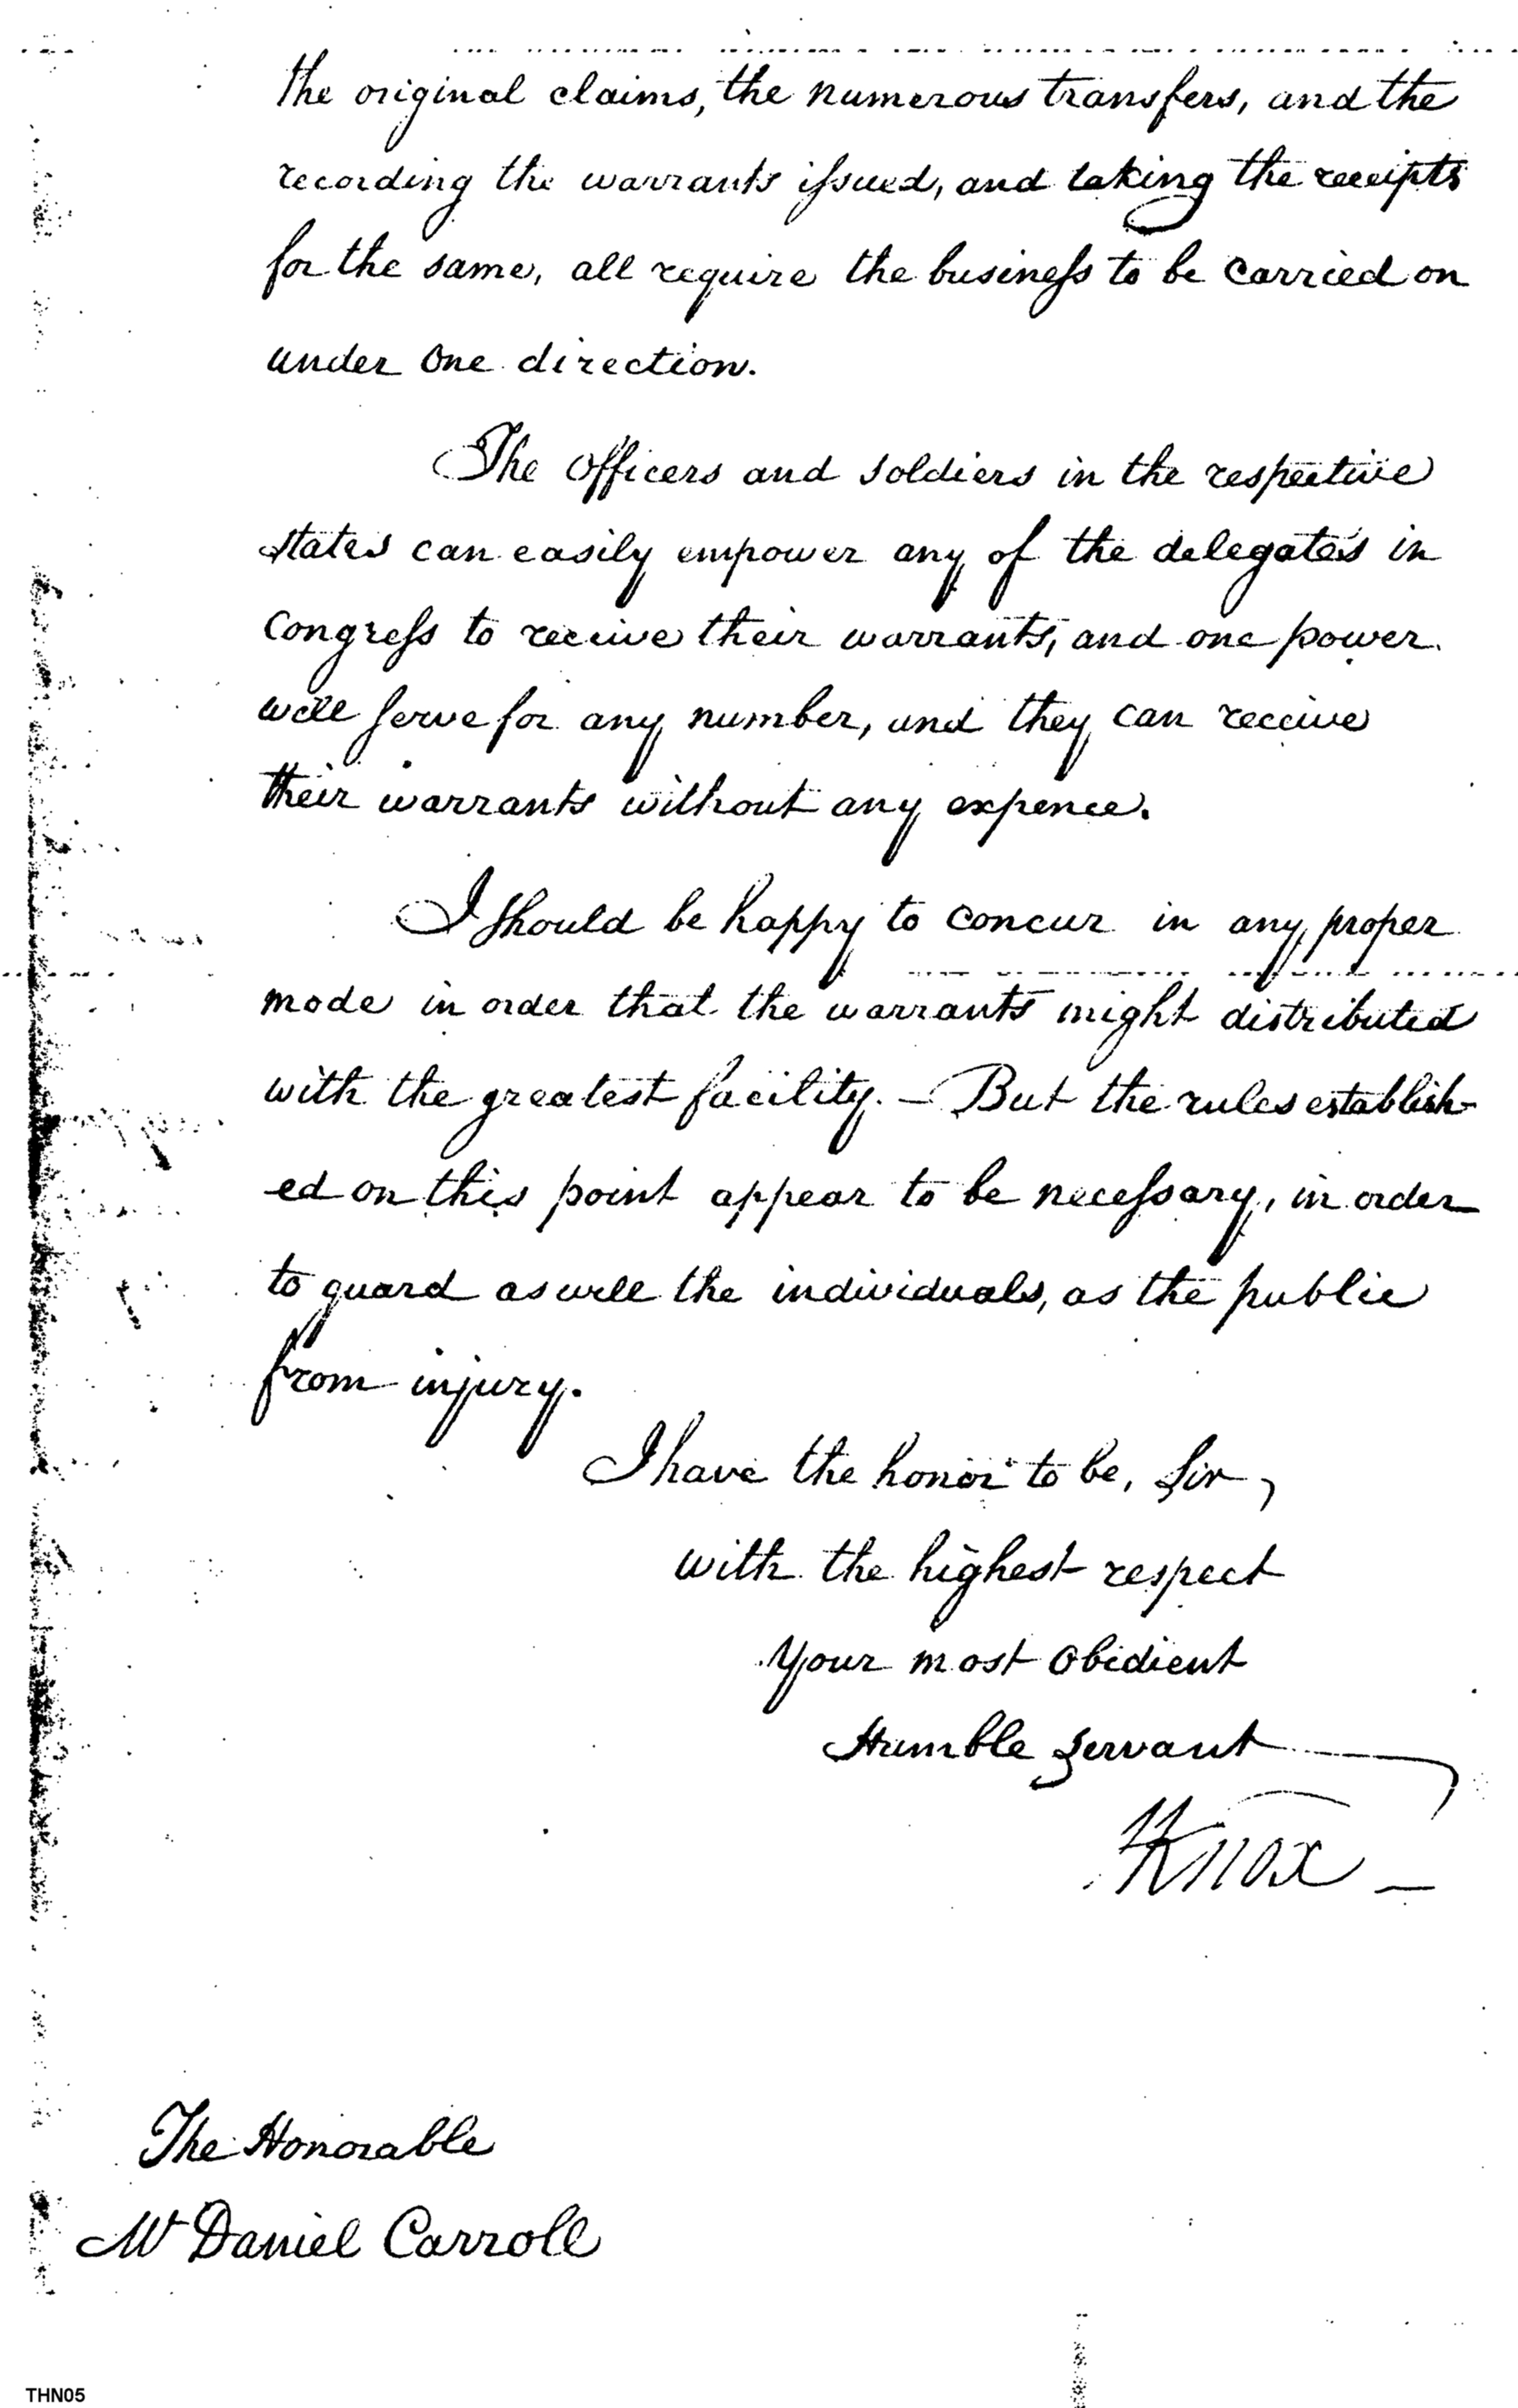 the original claims, the numerous transfers, and the
recording the warrants issued, and taking the receipts
for the same, all require the business to be carried on
under one direction.
The officers and soldiers in the respective
states can easily empower any of the delegates in
Congress to receive their warrants, and one power
will serve for any number, and they can receive
their warrants without any expence.
I should be happy to concur in any proper
mode in order that the warrants might distributed
with the greatest facility. — But the rules establish-
ed on this point appear to be necessary, in order
to guard as well the individuals, as the public
from injury.
I have the honor to be, Sir,
with the highest respect
Your most obedient
Humble Servant
HKnox —
The Honorable
Mr Daniel Carroll
THN05